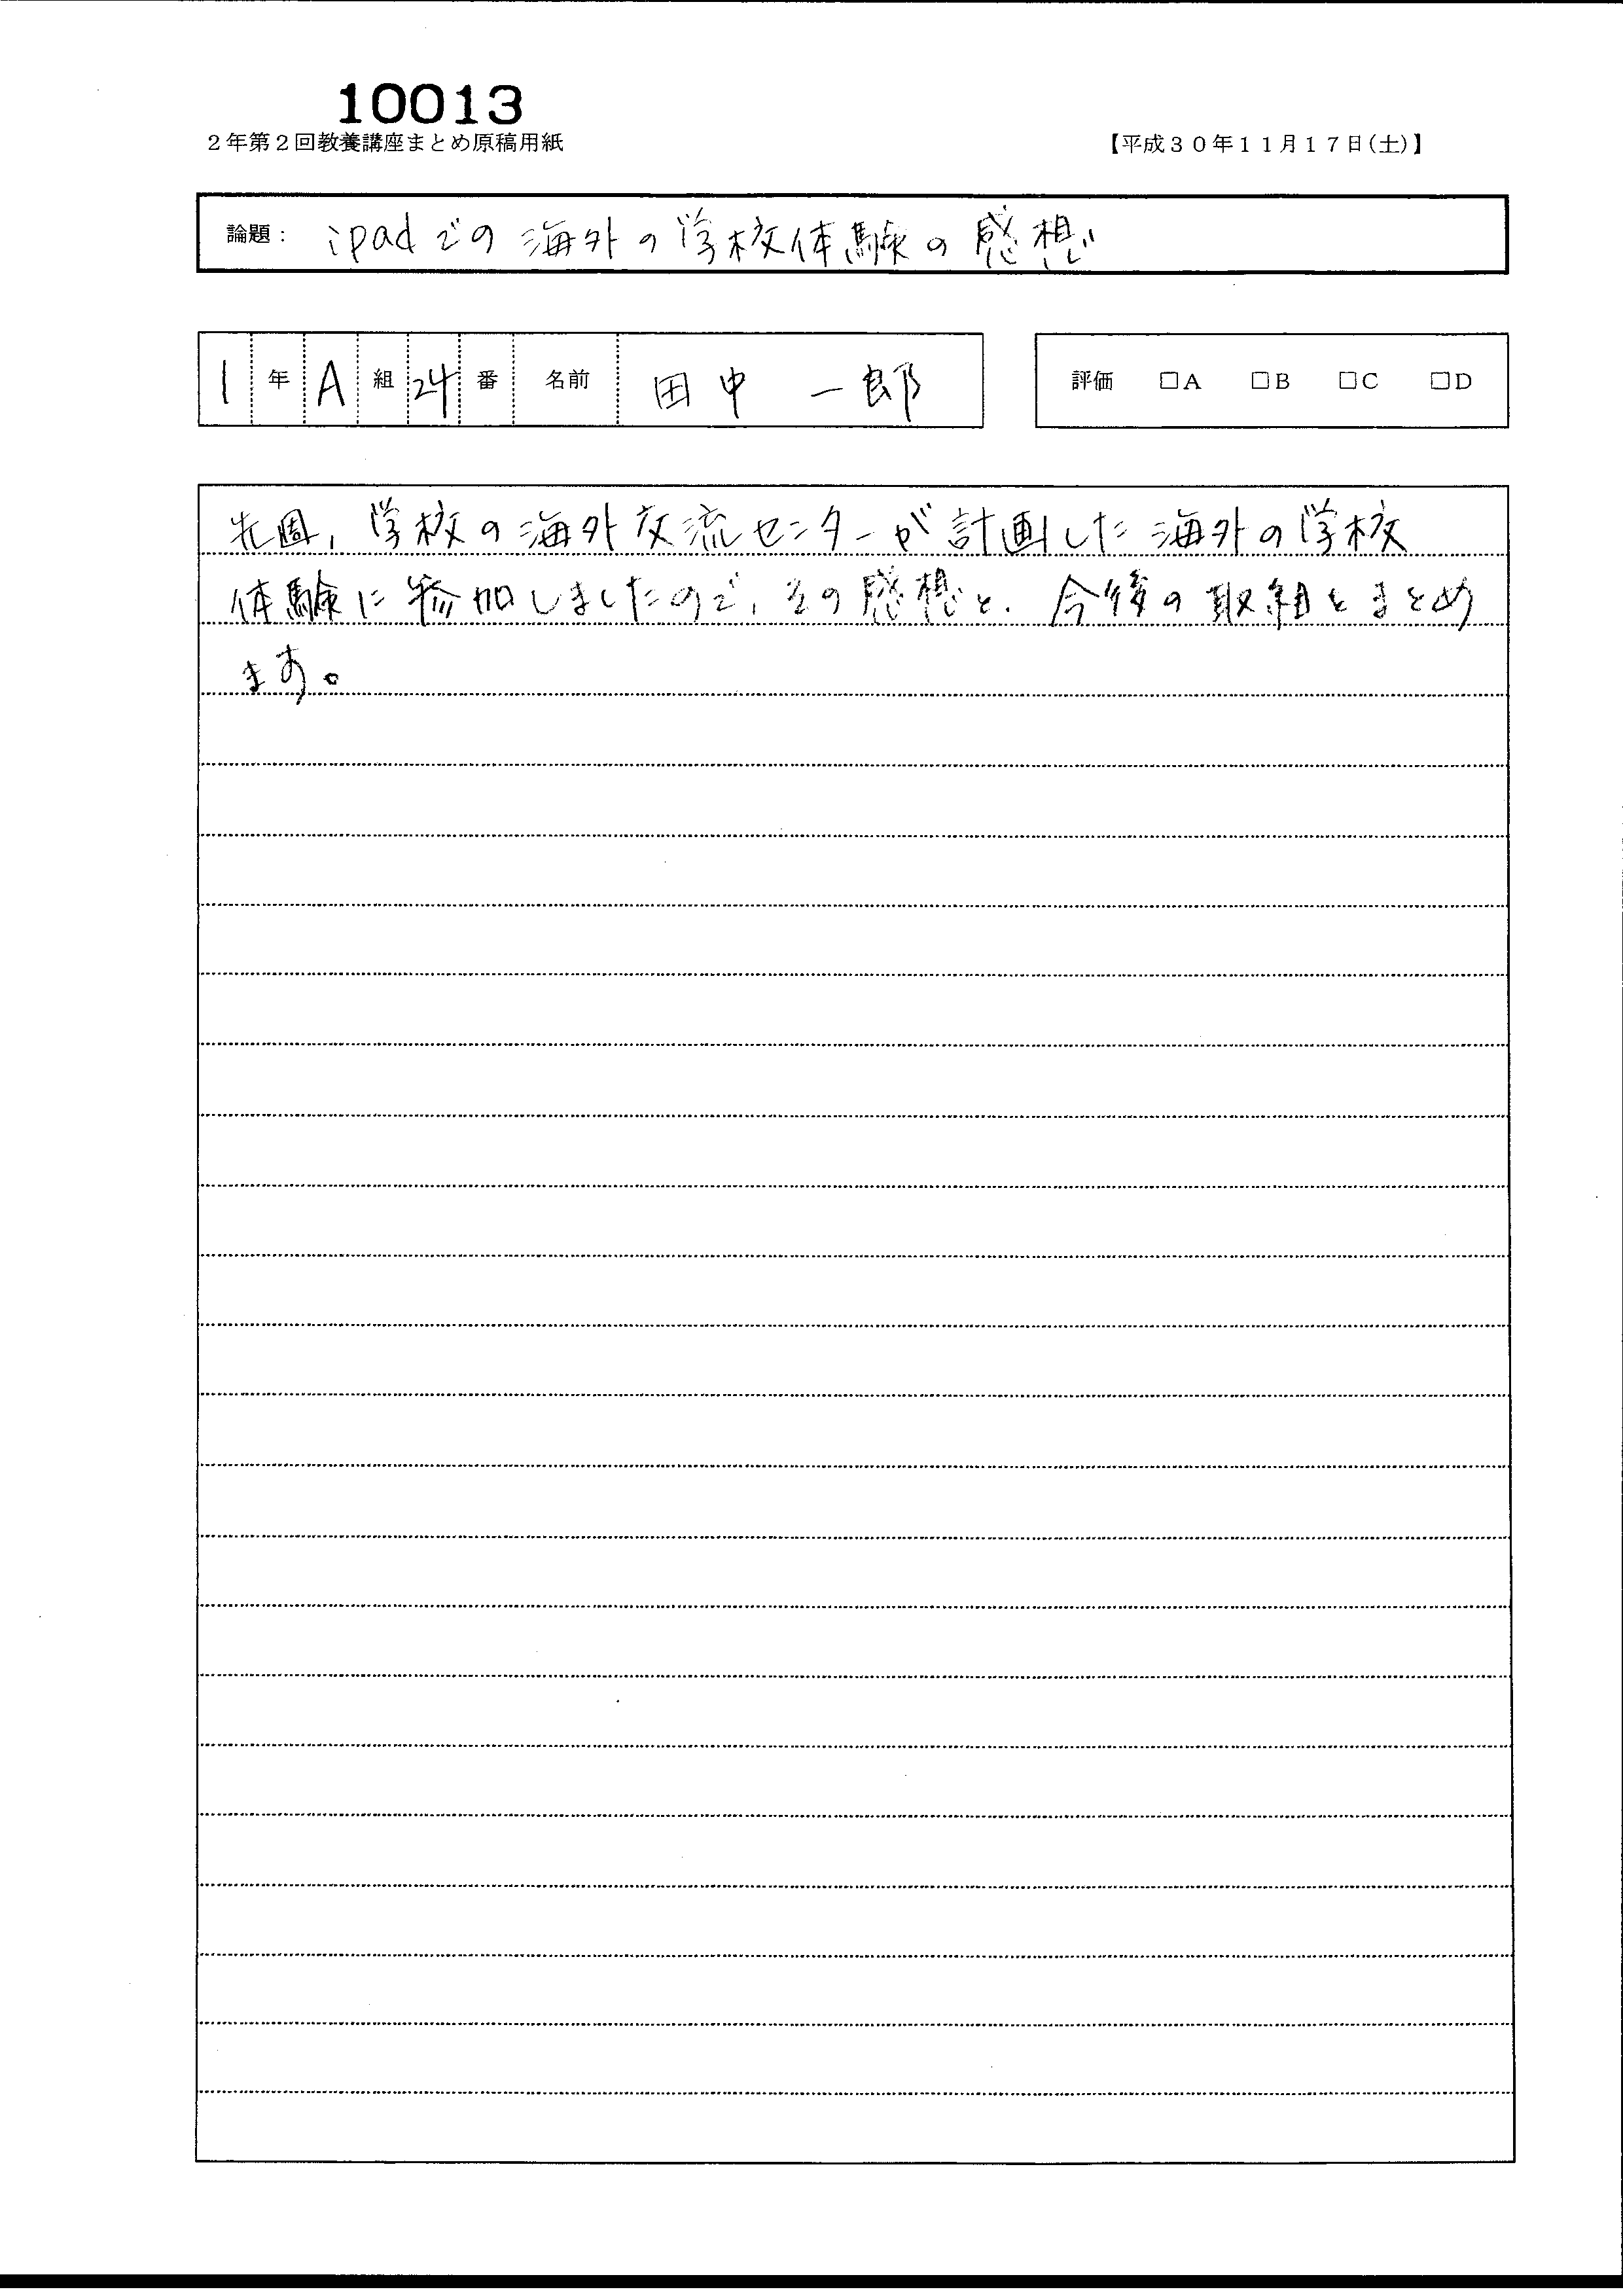 10013
2年第2回教養講座まとめ原稿用紙
【平成30年11月17日(土)】
論題： ipadでの海外の学校体験の感想
1 年 A 組 24 番 名前 田中 一郎
評価 □A □B □C □D
先週，学校の海外交流センターが計画した海外の学校
体験に参加しましたので，その感想と，今後の取組をまとめ
ます。